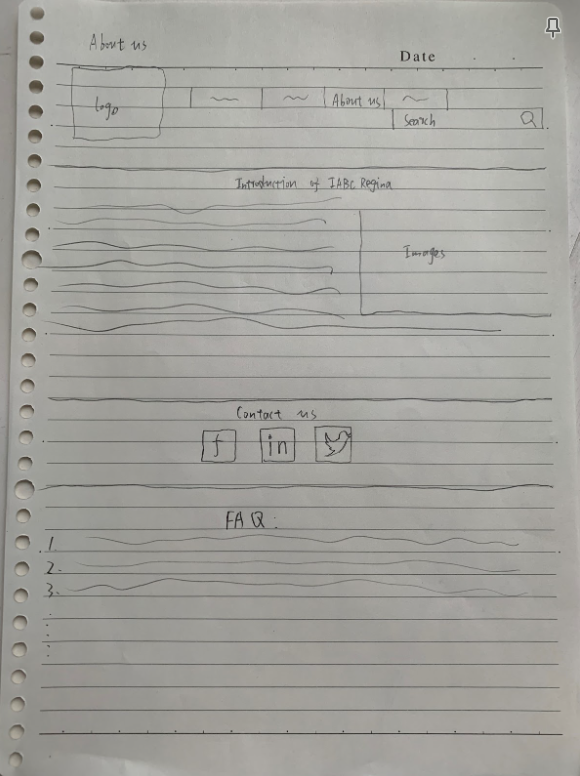 About us
Date
Logo
About us
Search
Introduction of IABC Regina
Images
Contact us
f in
FAQ:
1.
2.
3.